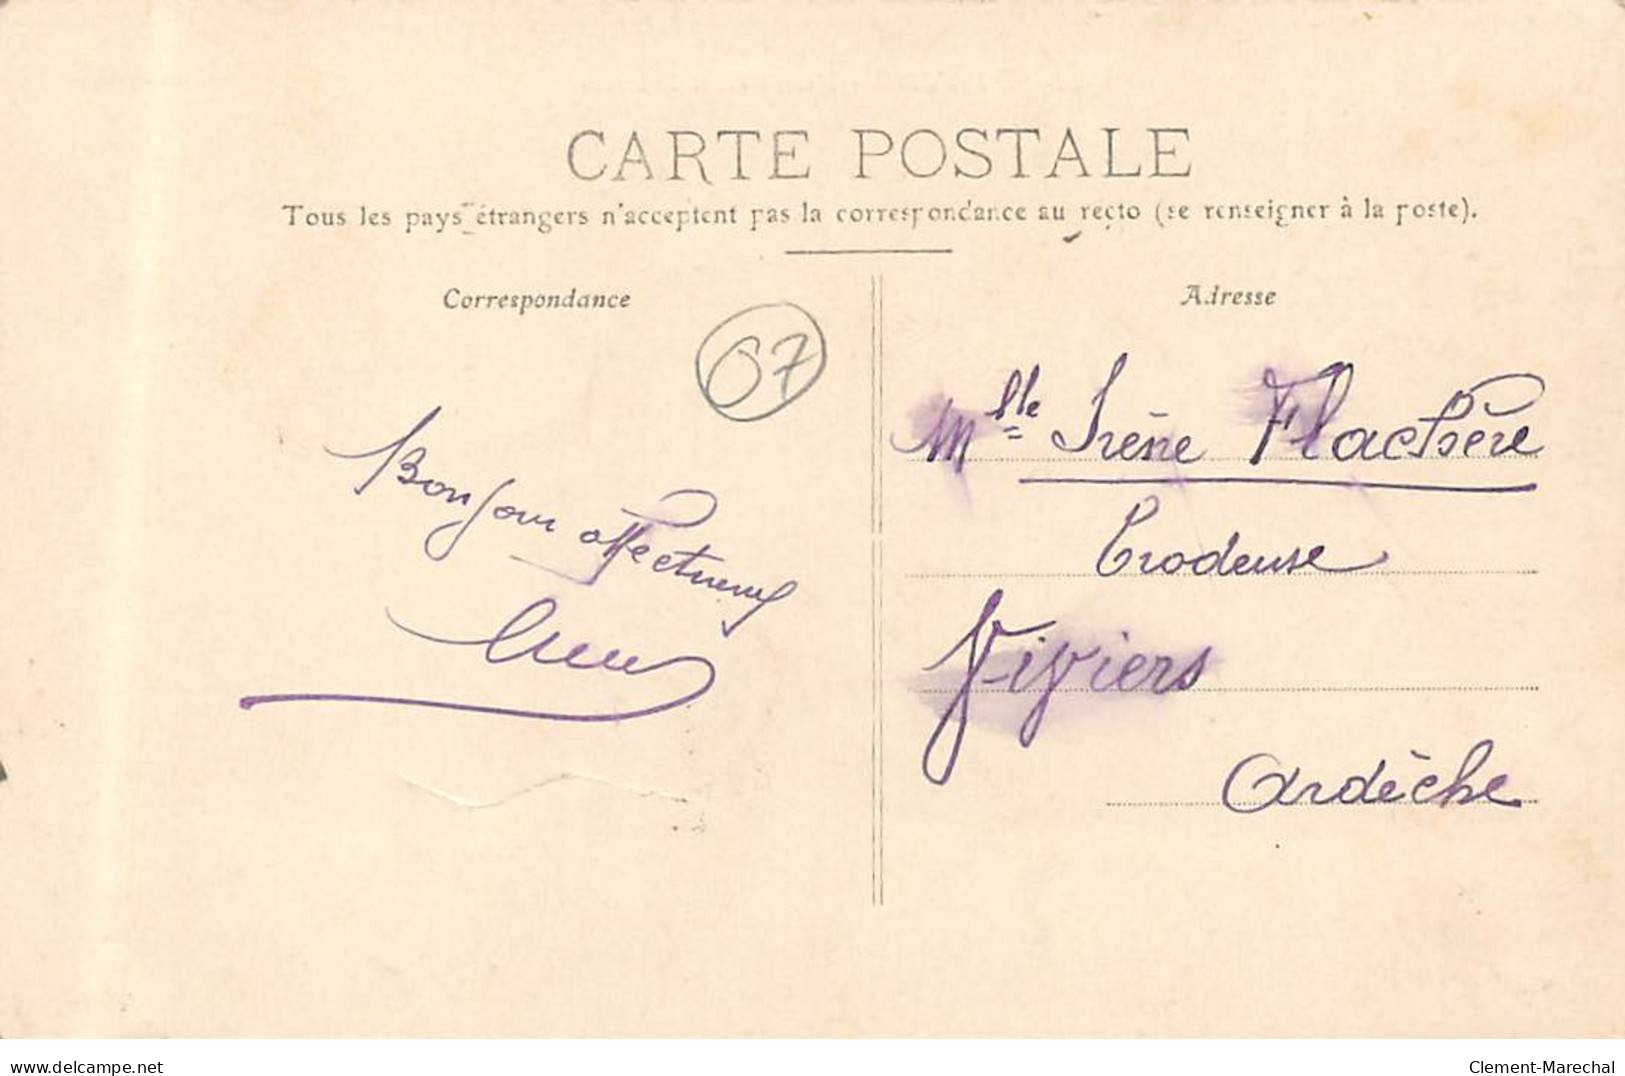 CARTE POSTALE
Tous les pays étrangers n'acceptent pas la correspondance au recto (se renseigner à la poste).
Correspondance
Adresse
67
Mlle Irène Flachère
Brodeuse
Viviers
Ardèche
Bonjour affectueux
www.delcampe.net
Clement-Marechal